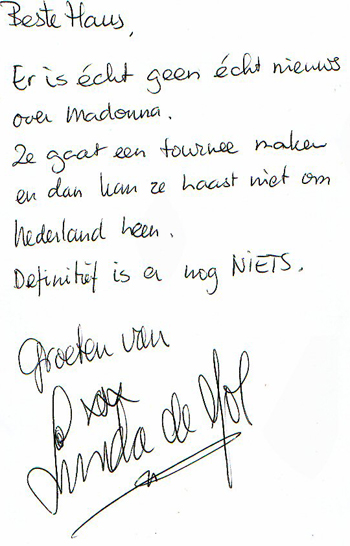 Beste Hans,
Er is écht geen écht nieuws
over Madonna.
Ze gaat een tournee maken
en dan kan ze haast niet om
Nederland heen.
Definitief is er nog NIETS.
Groeten van
xox
Linda de Mol